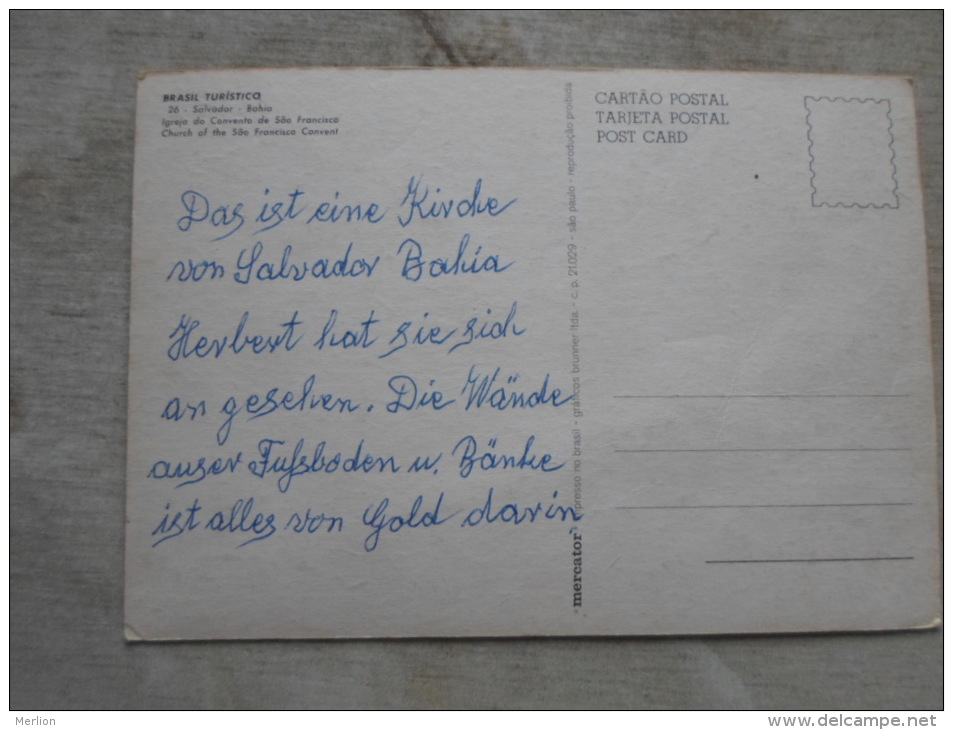 BRASIL TURÍSTICO
26 - Salvador - Bahia
Igreja do Convento de São Francisco
Church of the São Francisco Convent
Das ist eine Kirche
von Salvador Bahia
Herbert hat sie sich
an gesehen. Die Wände
auser Fußboden u. Bänke
ist alles von Gold darin
mercator
impresso no brasil - gráficos brunner ltda. - c. p. 21.029 - são paulo - reprodução proibida
CARTÃO POSTAL
TARJETA POSTAL
POST CARD
Merlion
www.delcampe.net